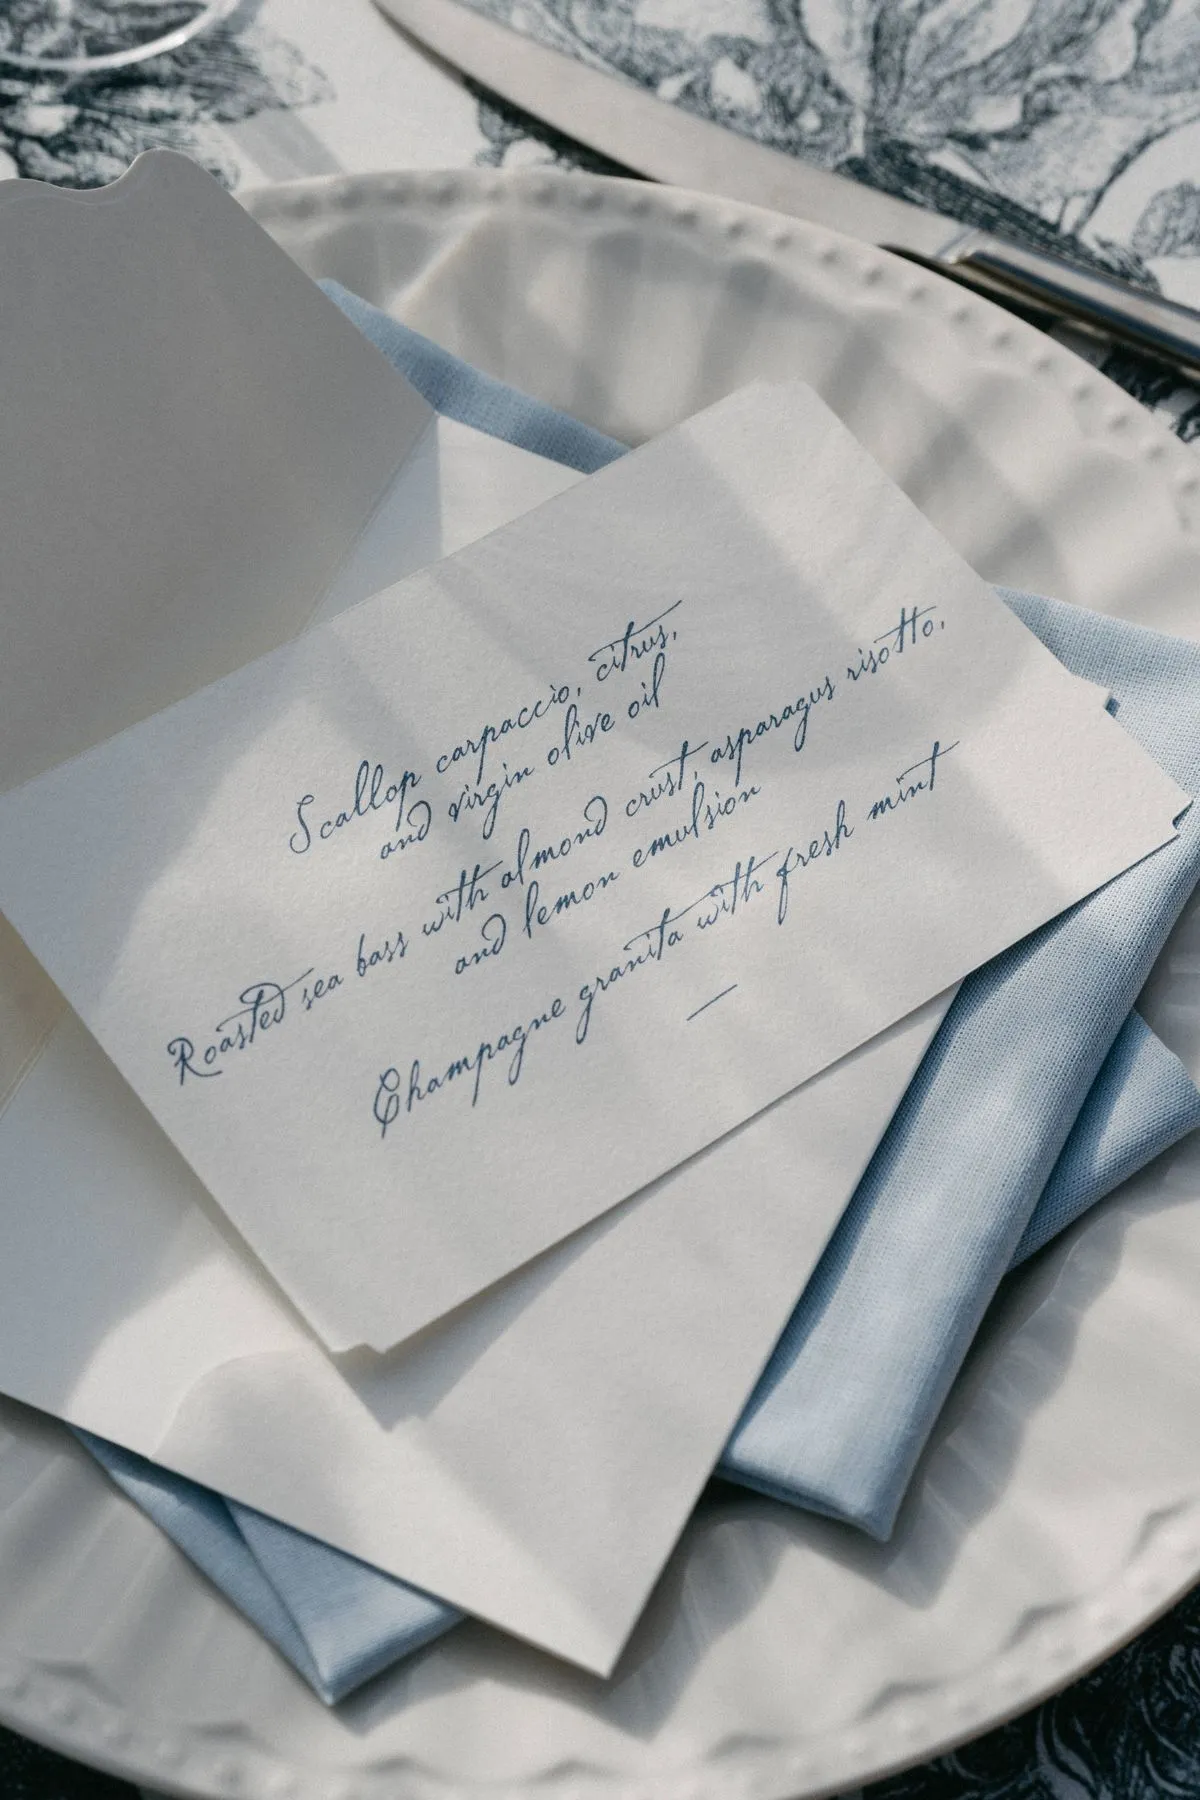 Scallop carpaccio, citrus,
and virgin olive oil
Roasted sea bass with almond crust, asparagus risotto,
and lemon emulsion
Champagne granita with fresh mint
—